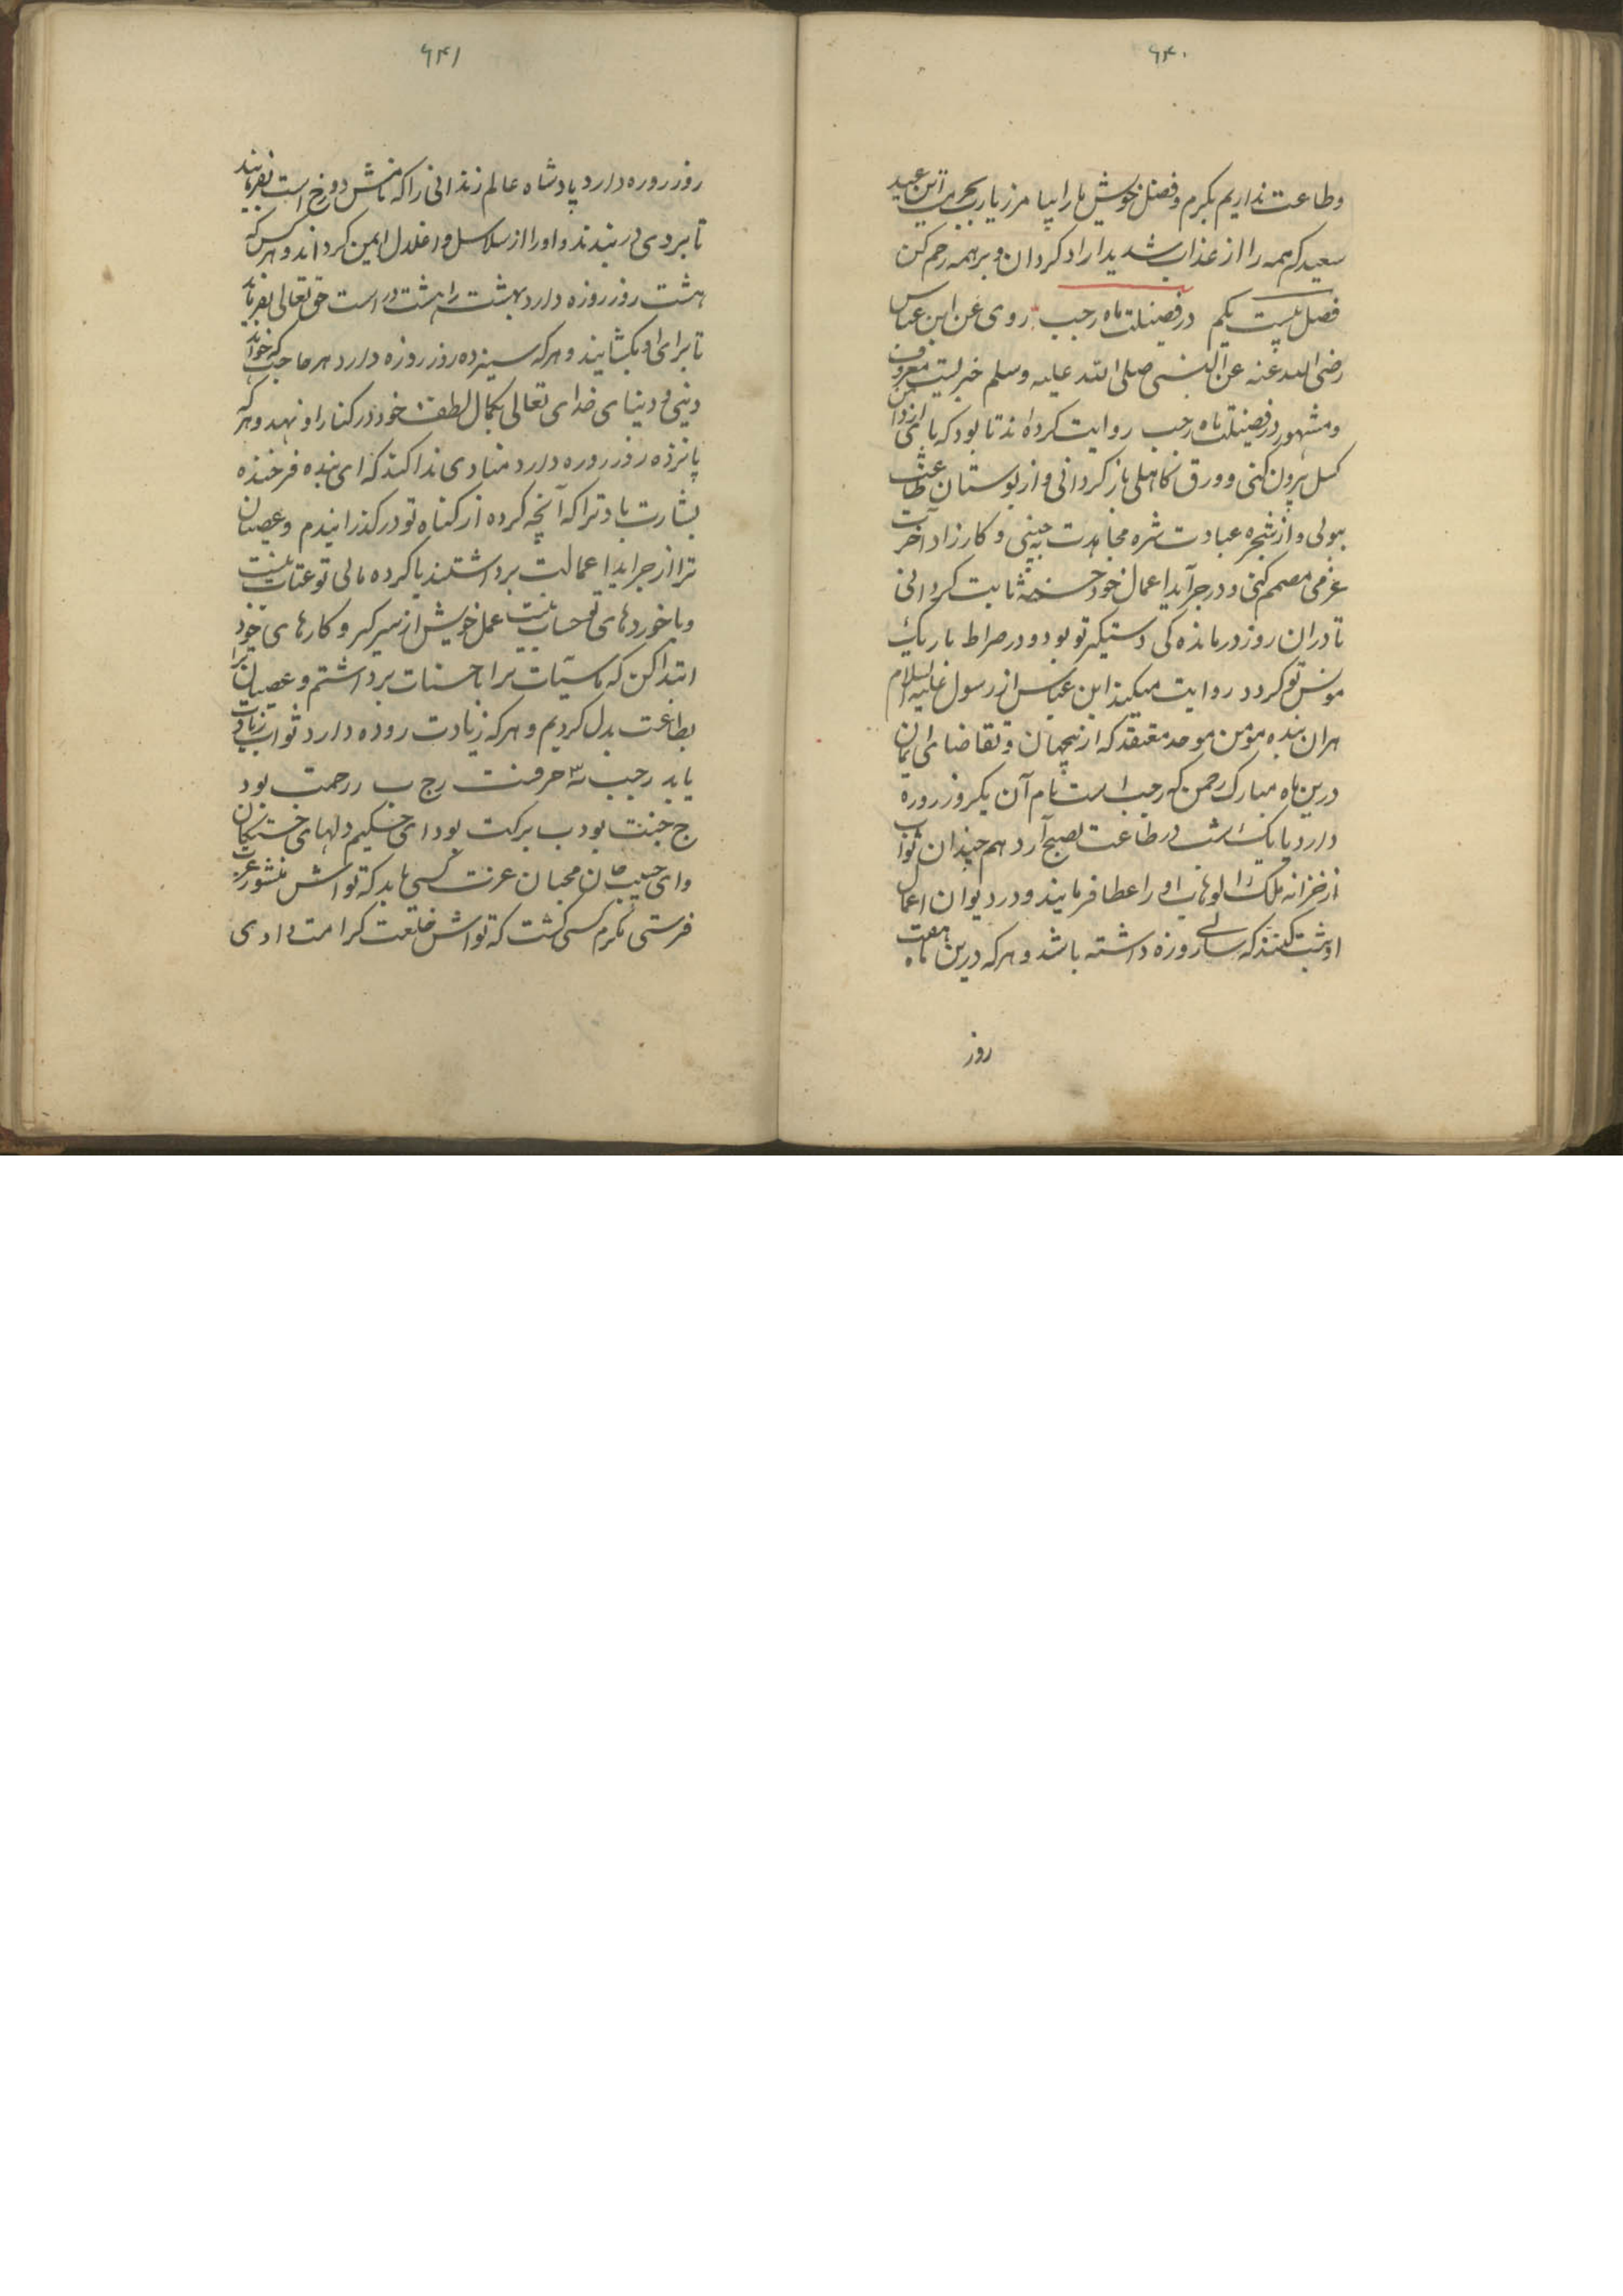 ۶۴۰
وطاعت نداریم بکرم و فضل خویش ما را بیامرز یا رب بحرمت این عید
سعید که همه را از عذاب شدید ازاد کردان و بر همه رحم کن
فصل بیست یکم در فضیلت ماه رجب روی عن ابن عباس
رضی الله عنه عن النبی صلی الله علیه وسلم خبریست معروف
و مشهور در فضیلت ماه رجب روایت کرده اند تا بود که پای از دامن
کسل بیرون کنی و ورق کاهلی باز کردانی و از بوستان طاعت
ببوئی و از شجره عبادت ثمره مجاهدت بچینی و کار زاد آخرت
عزمی مصمم کنی و در جراید اعمال خود حسنه ثابت کردانی
تا در ان روز درماندکی دستکیر تو بود و در صراط باریک
مونس تو کردد روایت میکند ابن عباس از رسول علیه السلام
هران بنده مؤمن موحد معتقد که از بتقاضای ایمان
درین ماه مبارک رحمن که رجب است نام آن یکروز روزه
دارد یا یک شب در طاعت بصبح آرد هم چندان ثواب
از خزانه ملک الوهاب او را عطا فرمایند و در دیوان اعمال
او ثبت کنند که سالی روزه داشته باشد و هرکه درین ماه هفت
روز
۶۴۱
روز روزه دارد پادشاه عالم زندانی را که نامش دوزخ است بفرمایند
تا بروی در بندند و او را از سلاسل و اغلال ایمن کرداند و هرکس که
هشت روز روزه دارد بهشت را هشت در است حق تعالی بفرماید
تا برای او بکشایند و هرکه سیزده روز روزه دارد هر حاجت که خواهد
دینی و دنیای خدای تعالی بکمال لطف خود در کنار او نهد و هر که
پانزده روز روزه دارد منادی ندا کند که ای بنده فرخنده
بشارت باد ترا که آنچه کرده از کناه تو درکذرانیدم و عصیان
ترا از جراید اعمالت برداشتند با کرده مالی تو عتاب نیست
و با خوردهای تو حساب نیست عمل خویش از سر کیر و کارهای خود
ابتدا کن که ما سیّات ترا با حسنات برداشتم و عصیان ترا
بطاعت بدل کردیم و هرکه زیادت روزه دارد ثواب زیادت
یابد رجب سه حرفست ر ج ب ر رحمت بود
ج جنت بود ب برکت بود ای حکیم دلهای خستکان
و ای حبیب جان محبان عزت کسی یابد که تواش منشور عزت
فرستی مکرم کسی کشت که تواش خلعت کرامت دادی